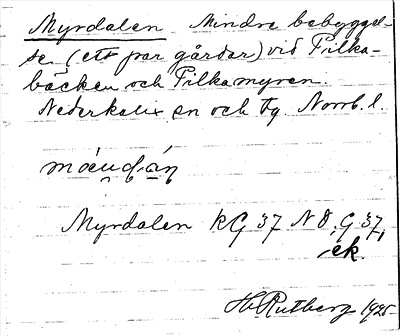 Myrdalen Mindre bebyggel-
se (ett par gårdar) vid Pilka-
bäcken och Pilkamyren.
Nederkalix sn och tg. Norrb. l.
Myrdalen KG 37 N 8, G 37,
ek.
Hb Rutberg 1925